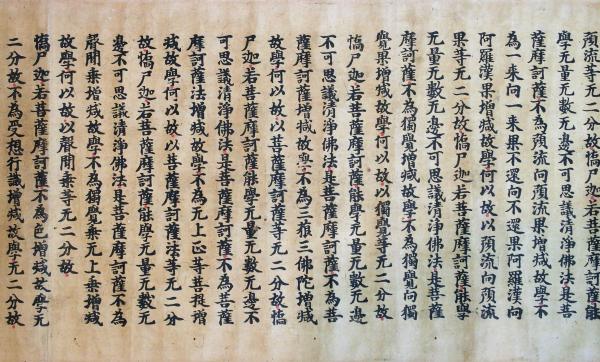 預流等无二分故憍尸迦若菩薩摩訶薩能
學无量无數无邊不可思議清淨佛法是菩
薩摩訶薩不為預流向預流果增減故學不
為一來向一來果不還向不還果阿羅漢向
阿羅漢果增減故學何以故以預流向預流
果等无二分故憍尸迦若菩薩摩訶薩能學
无量无數无邊不可思議清淨佛法是菩薩
摩訶薩不為獨覺增減故學不為獨覺向獨
覺果增減故學何以故以獨覺等无二分故
憍尸迦若菩薩摩訶薩能學无量无數无邊
不可思議清淨佛法是菩薩摩訶薩不為菩
薩摩訶薩增減故學不為三藐三佛陀增減
故學何以故以菩薩摩訶薩等无二分故憍
尸迦若菩薩摩訶薩能學无量无數无邊不
可思議清淨佛法是菩薩摩訶薩不為菩薩
摩訶薩法增減故學不為无上正等菩提增
減故學何以故以菩薩摩訶薩法等无二分
故憍尸迦若菩薩摩訶薩能學无量无數无
邊不可思議清淨佛法是菩薩摩訶薩不為
聲聞乘增減故學不為獨覺乘无上乘增減
故學何以故以聲聞乘等无二分故
憍尸迦若菩薩摩訶薩不為色增減故學无
二分故不為受想行識增減故學无二分故